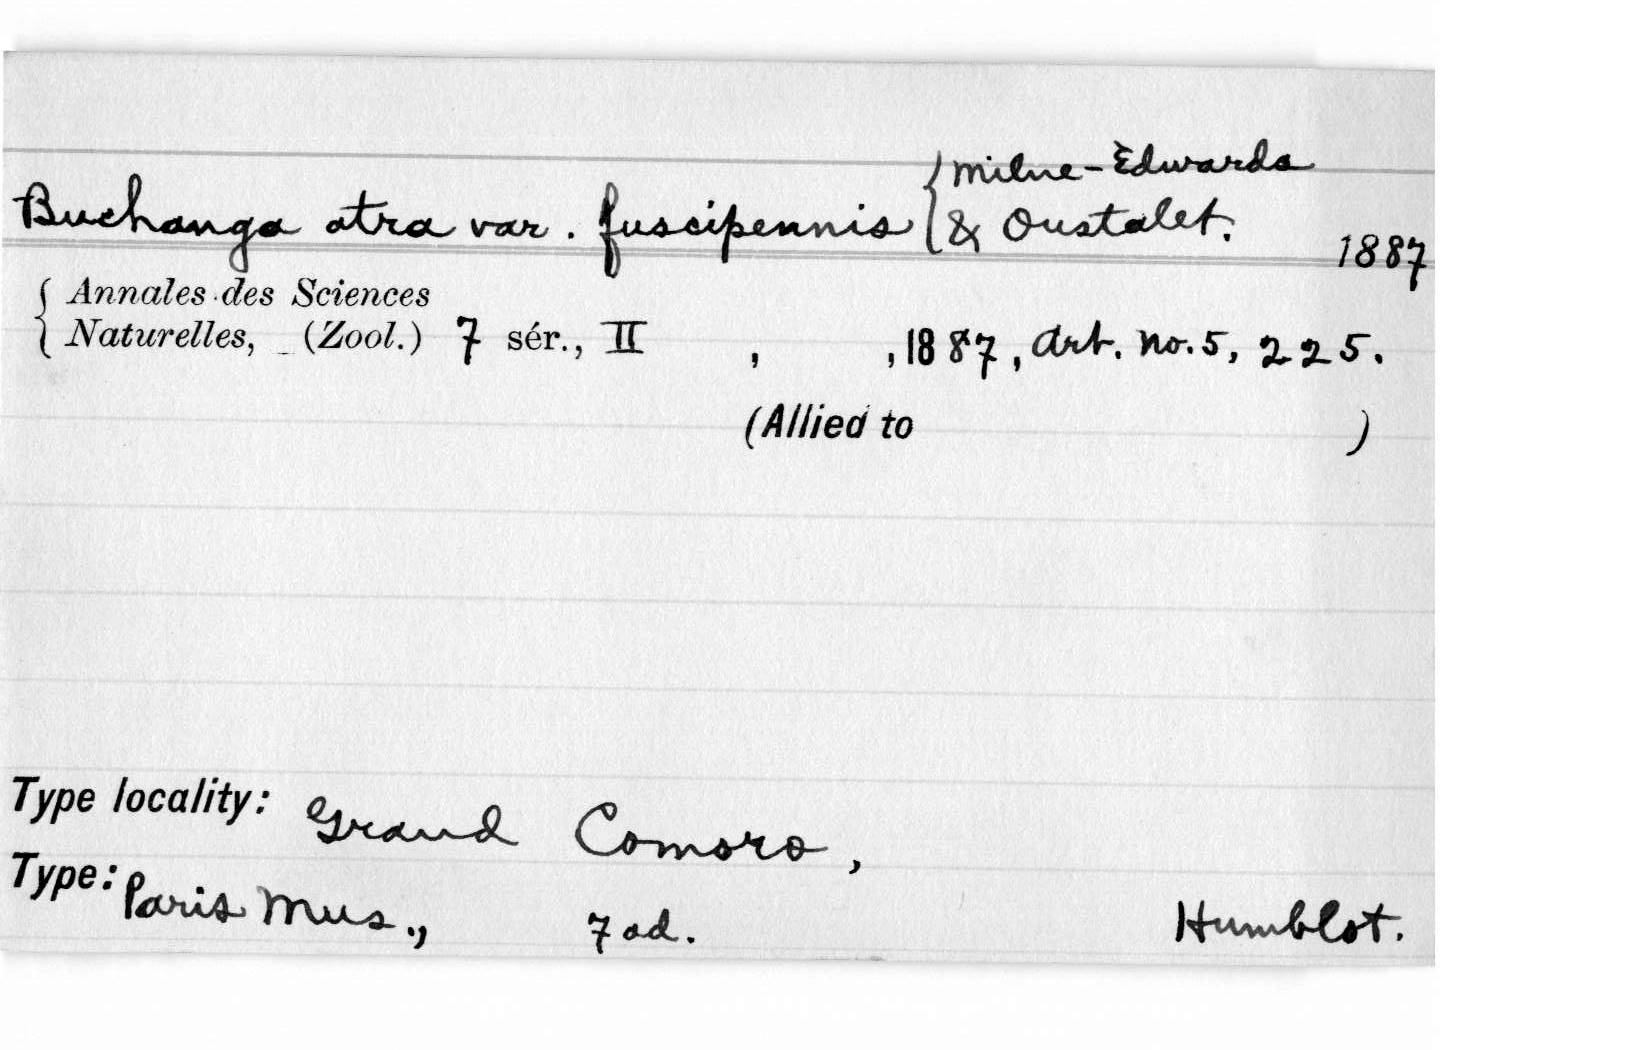 Buchanga atra var. fuscipennis { Milne-Edwards
& Oustalet. 1887
{ Annales des Sciences
Naturelles, (Zool.) 7 sér., II , , 1887, Art. No. 5, 225.
(Allied to )
Type locality: Grand Comoro,
Type: Paris Mus., 7 ad. Humblot.